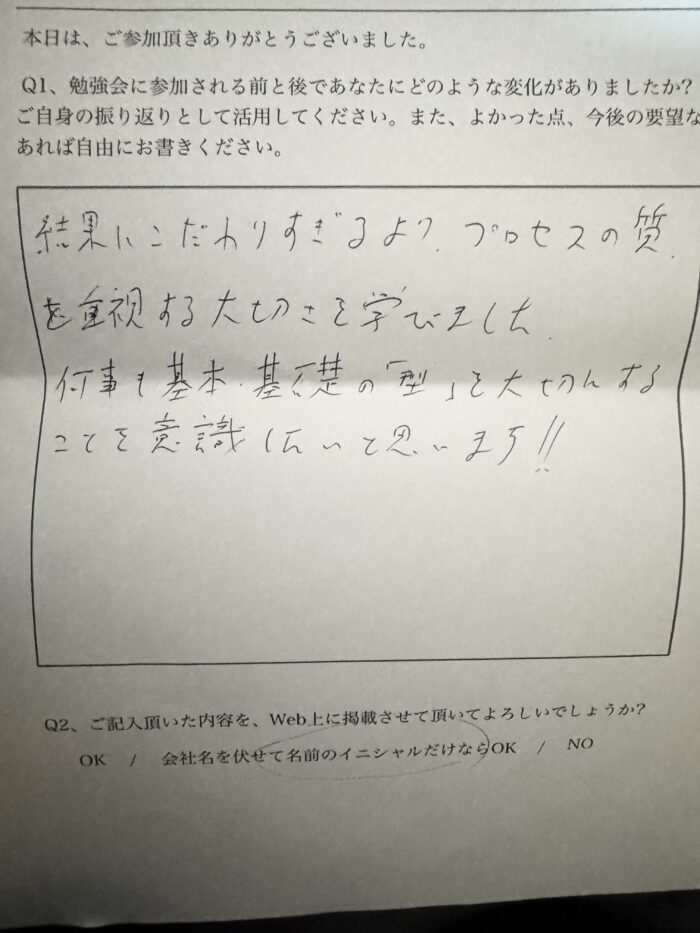 本日は、ご参加頂きありがとうございました。
Q1、勉強会に参加される前と後であなたにどのような変化がありましたか?
ご自身の振り返りとして活用してください。また、よかった点、今後の要望な
あれば自由にお書きください。
結果にこだわりすぎるより、プロセスの質
を重視する大切さを学びました.
何事も基本・基礎の「型」を大切にする
ことを意識したいと思います!!
Q2、ご記入頂いた内容を、Web上に掲載させて頂いてよろしいでしょうか?
OK / 会社名を伏せて名前のイニシャルだけならOK / NO